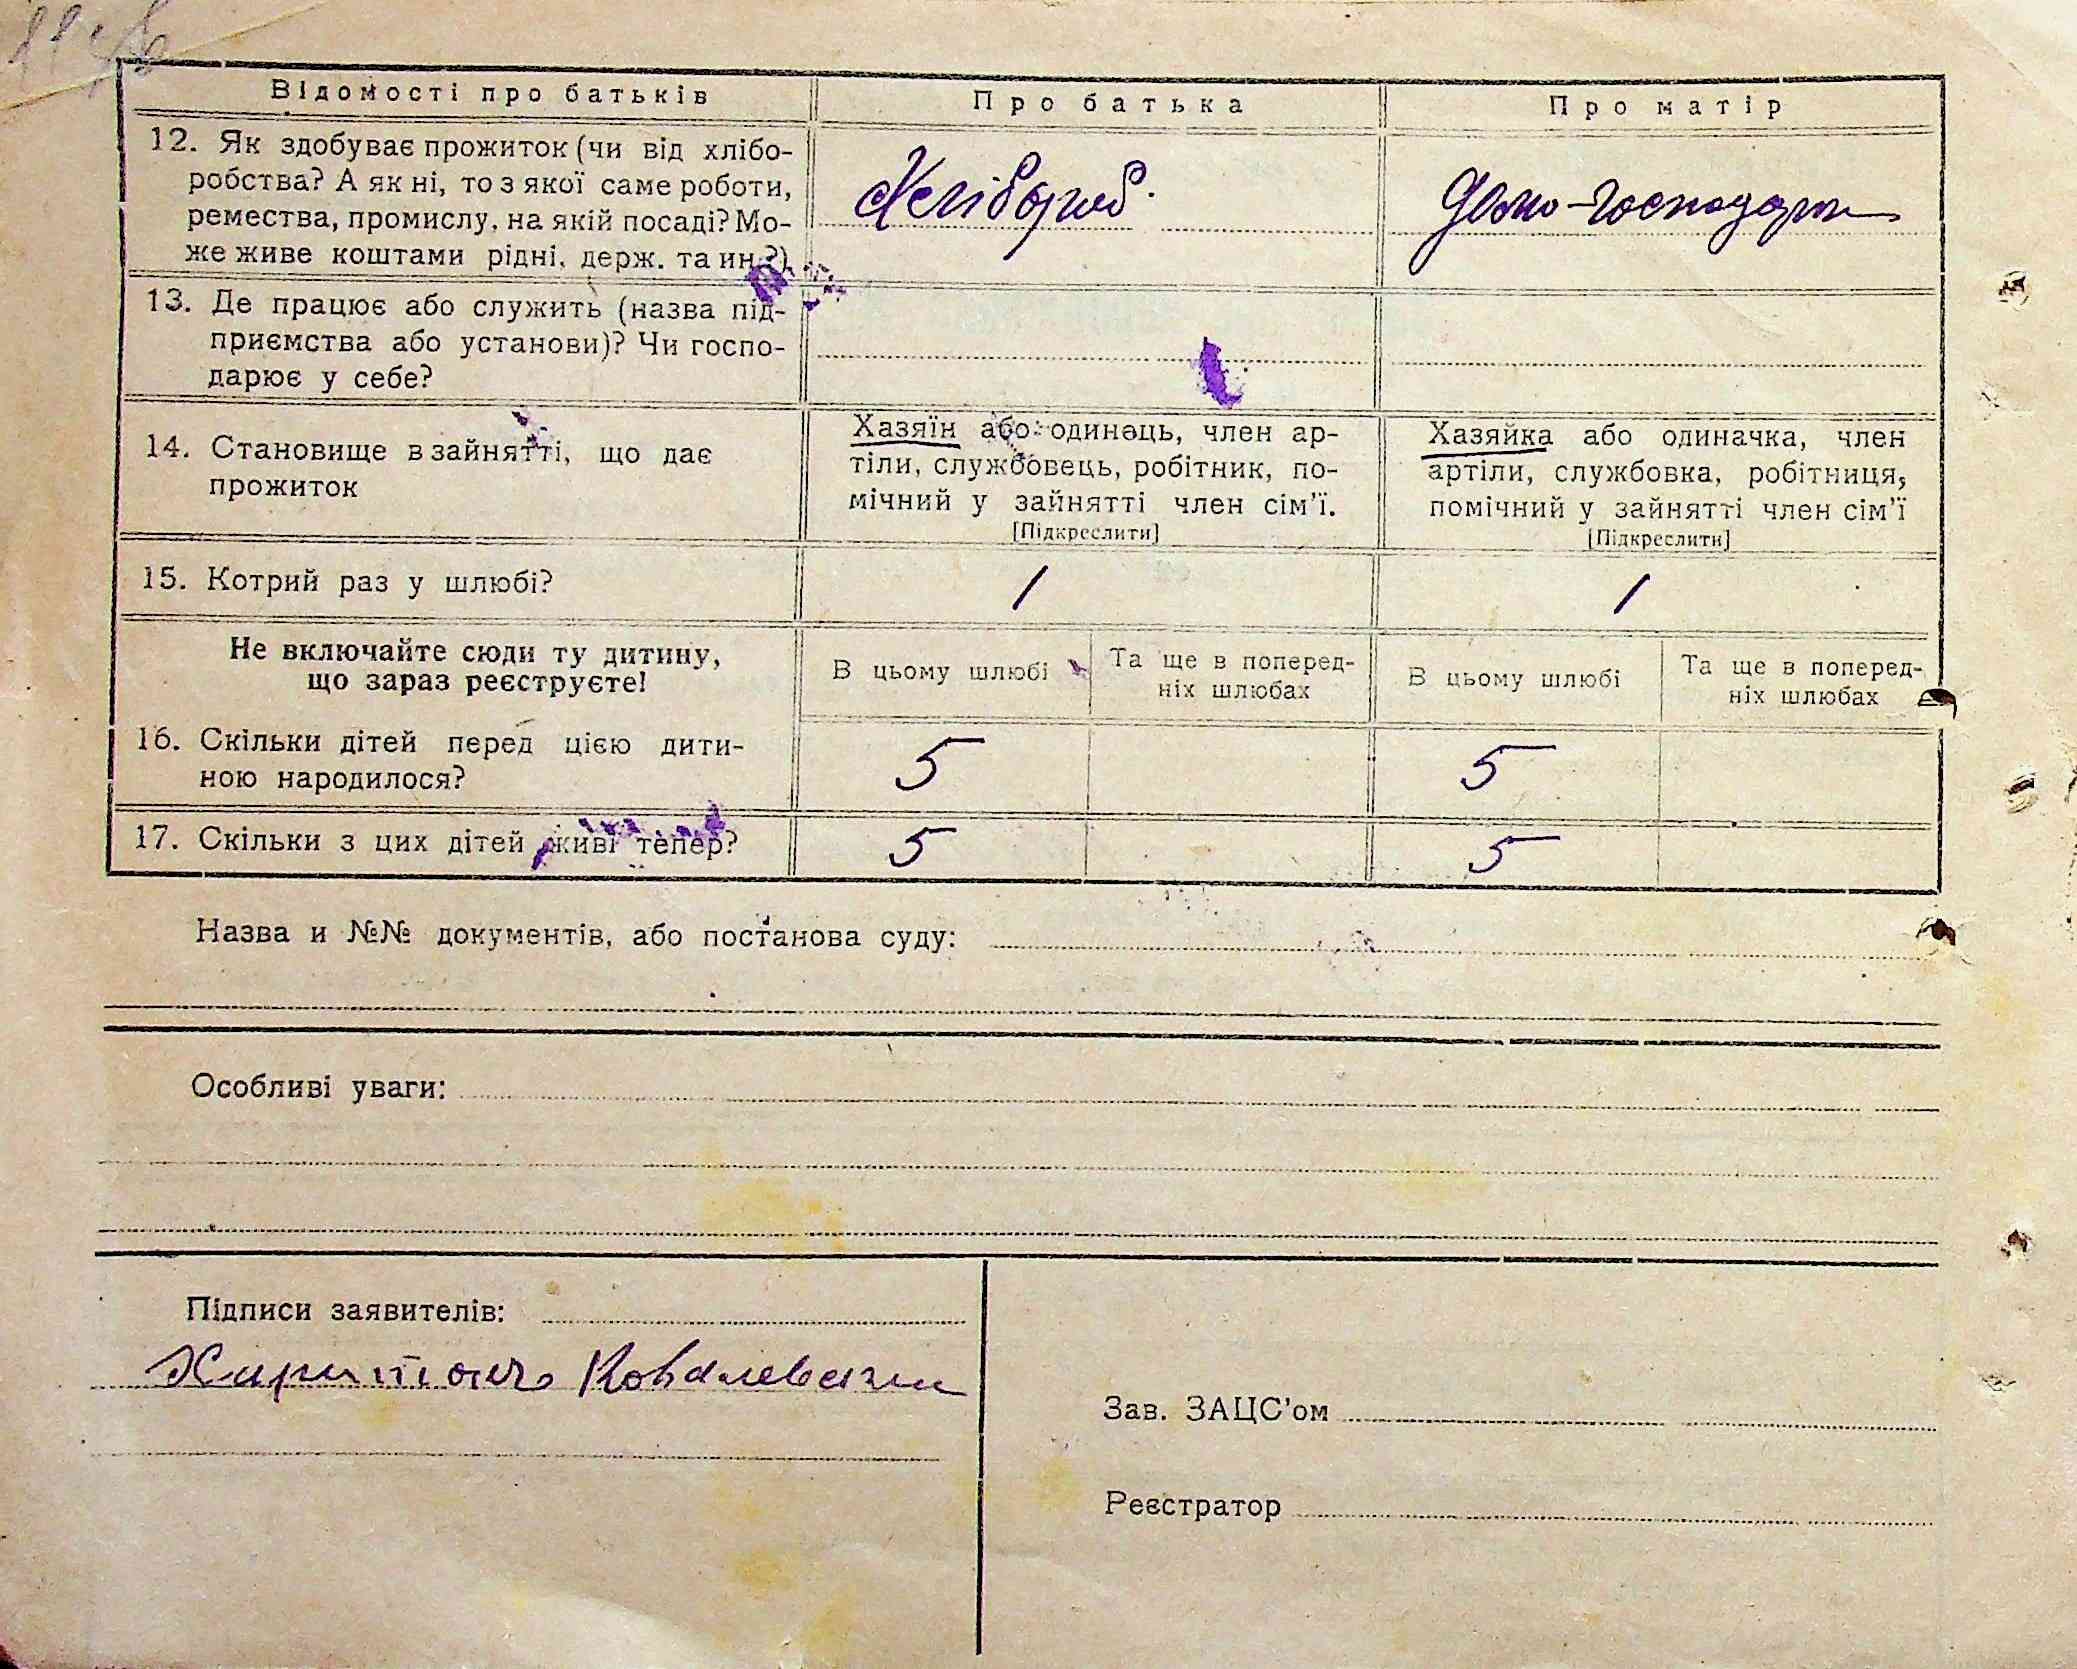 Відомості про батьків
Про батька
Про матір
12. Як здобуває прожиток (чи від хлібо-
робства? А як ні, то з якої саме роботи,
ремества, промислу, на якій посаді? Мо-
же живе коштами рідні, держ. та ин.?)
Хлібороб.
Домо-господарка
13. Де працює або служить (назва під-
приємства або установи)? Чи госпо-
дарює у себе?
14. Становище в зайнятті, що дає
прожиток
Хазяїн або одинець, член ар-
тіли, службовець, робітник, по-
мічний у зайнятті член сім'ї.
[Підкреслити]
Хазяйка або одиначка, член
артіли, службовка, робітниця,
помічний у зайнятті член сім'ї
[Підкреслити]
15. Котрий раз у шлюбі?
1
1
Не включайте сюди ту дитину,
що зараз реєструєте!
В цьому шлюбі
Та ще в поперед-
ніх шлюбах
В цьому шлюбі
Та ще в поперед-
ніх шлюбах
16. Скільки дітей перед цією дити-
ною народилося?
5
5
17. Скільки з цих дітей живі тепер?
5
5
Назва и №№ документів, або постанова суду:
Особливі уваги:
Підписи заявителів:
Харитонъ Ковалевский
Зав. ЗАЦС'ом
Реєстратор